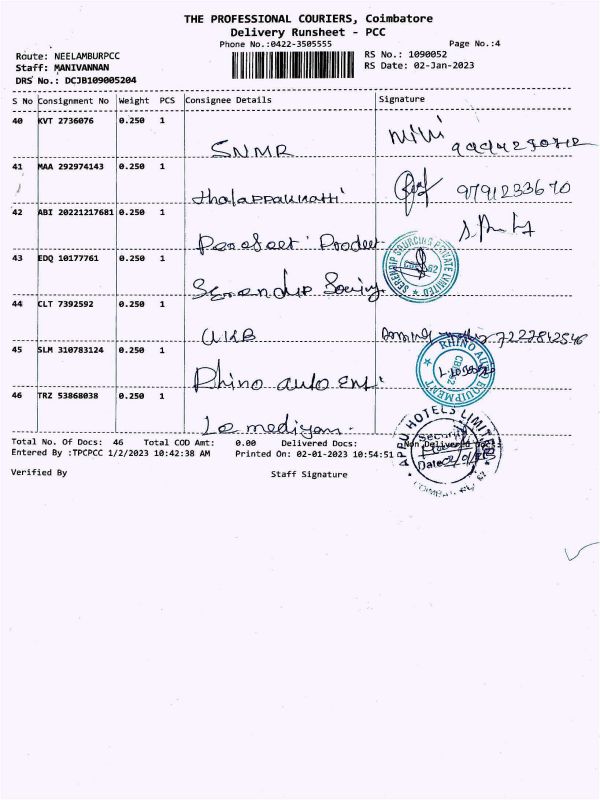 THE PROFESSIONAL COURIERS, Coimbatore
Delivery Runsheet - PCC
Phone No.:0422-3505555
Page No.:4
Route: NEELAMBURPCC
RS No.: 1090052
Staff: MANIVANNAN
RS Date: 02-Jan-2023
DRS No.: DCJB109005204
S No Consignment No Weight PCS Consignee Details Signature
40 KVT 2736076 0.250 1
SNMR
41 MAA 292974143 0.250 1
9791233670
42 ABI 20221217681 0.250 1
43 EDQ 10177761 0.250 1
SERENDIP SOURCING PRIVATE LIMITED
44 CLT 7392592 0.250 1
UKB 7227842546
45 SLM 310783124 0.250 1
Rhino auto
RHINO AUTO EQUIPMENT
46 TRZ 53868038 0.250 1
Le
APPU HOTELS LIMITED
Security
Date
Total No. Of Docs: 46 Total COD Amt: 0.00 Delivered Docs: Non Delivered Docs:
Entered By :TPCPCC 1/2/2023 10:42:38 AM Printed On: 02-01-2023 10:54:51
Verified By Staff Signature